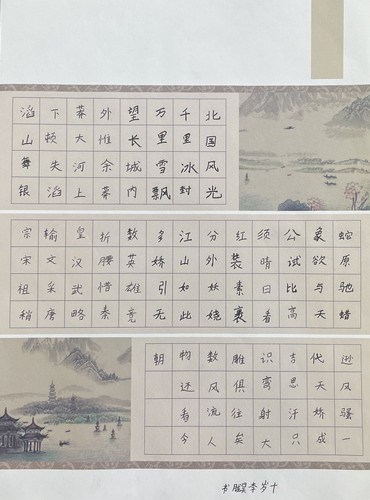 北国风光
千里冰封
万里雪飘
望长城内
外惟余莽
莽大河上
下顿失滔
滔山舞银
蛇原驰蜡
象欲与天
公试比高
须晴日看
红装素裹
分外妖娆
江山如此
多娇引无
数英雄竞
折腰惜秦
皇汉武略
输文采唐
宗宋祖稍
逊风骚一
代天娇成
吉思汗只
识弯射大
雕俱往矣
数风流人
物还看今
朝
十岁李书